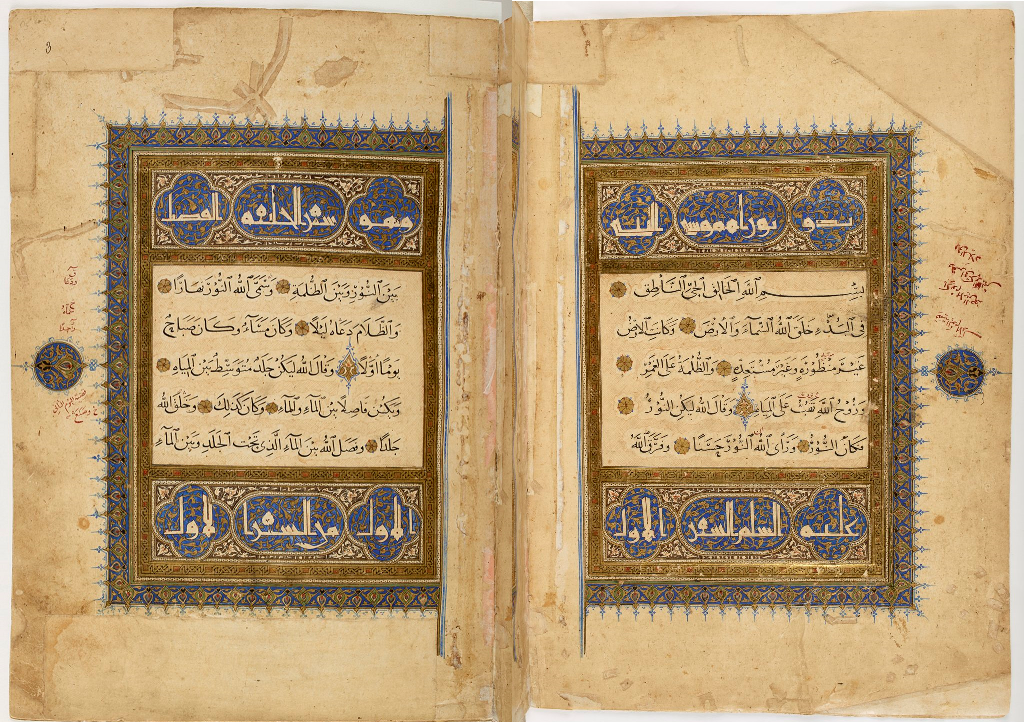 بدو توراه موسى النبي
بسم الله الخالق الحي الناطق
في البدء خلق الله السماء والارض وكانت الارض
غير منظورة وغير مستعدة والظلمة على الغمر
وروح الله تهب على المياه وقال الله ليكن النور
فكان النور وراى الله النور حسنا وفرق الله
عليه السلم السفر الاول
وهو سفر الخليقه الفصل
بين النور وبين الظلمة وسمى الله النور نهارا
والظلام دعاه ليلا وكان مساء وكان صباح
يوما اولا وقال الله ليكن جلد متوسط بين المياه
ويكن فاصلا بين الماء والماء وكان كذلك وخلق الله
جلدا وفصل الله بين الماء الذي تحت الجلد وبين الماء
الاول من السفر الاول